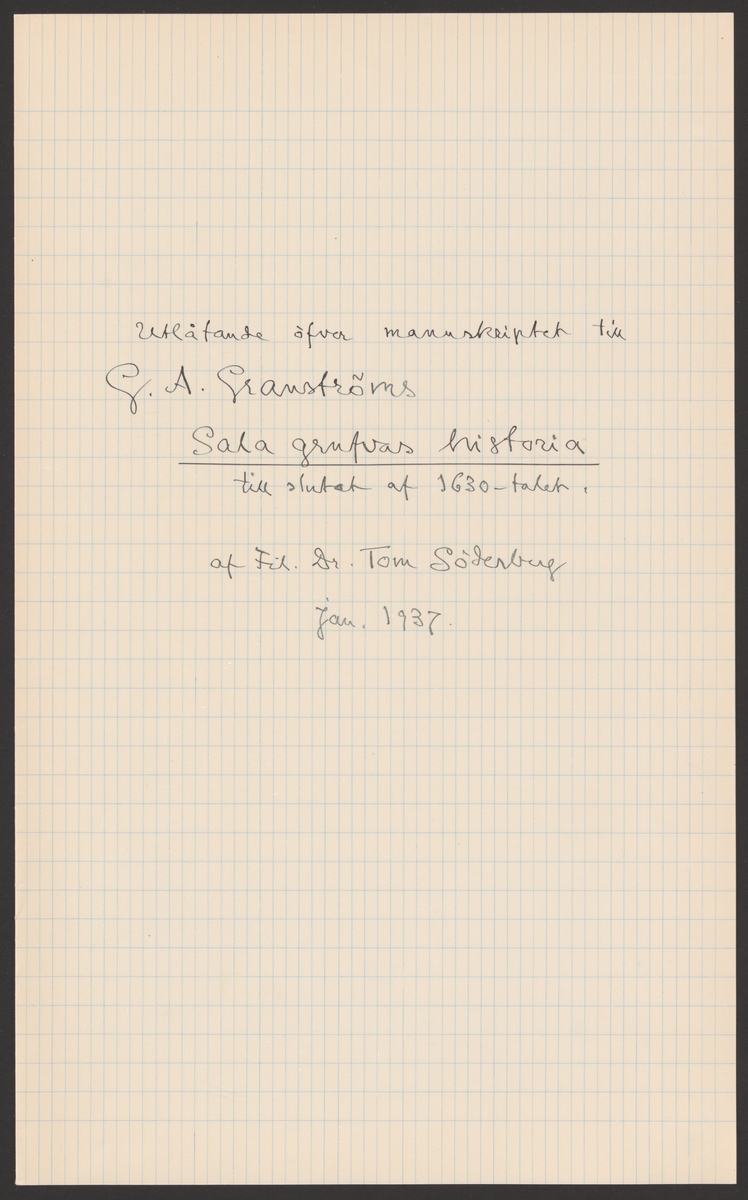 Utlåtande öfver manuskriptet till
G. A. Granströms
Sala grufvas historia
till slutet af 1630-talet.
af Fil. Dr. Tom Söderberg
jan. 1937.